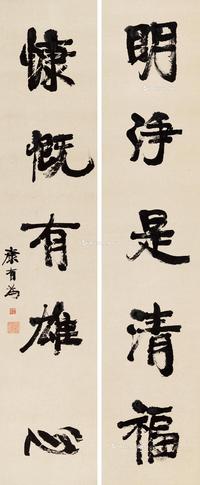 明淨是清福
慷慨有雄心
康有為